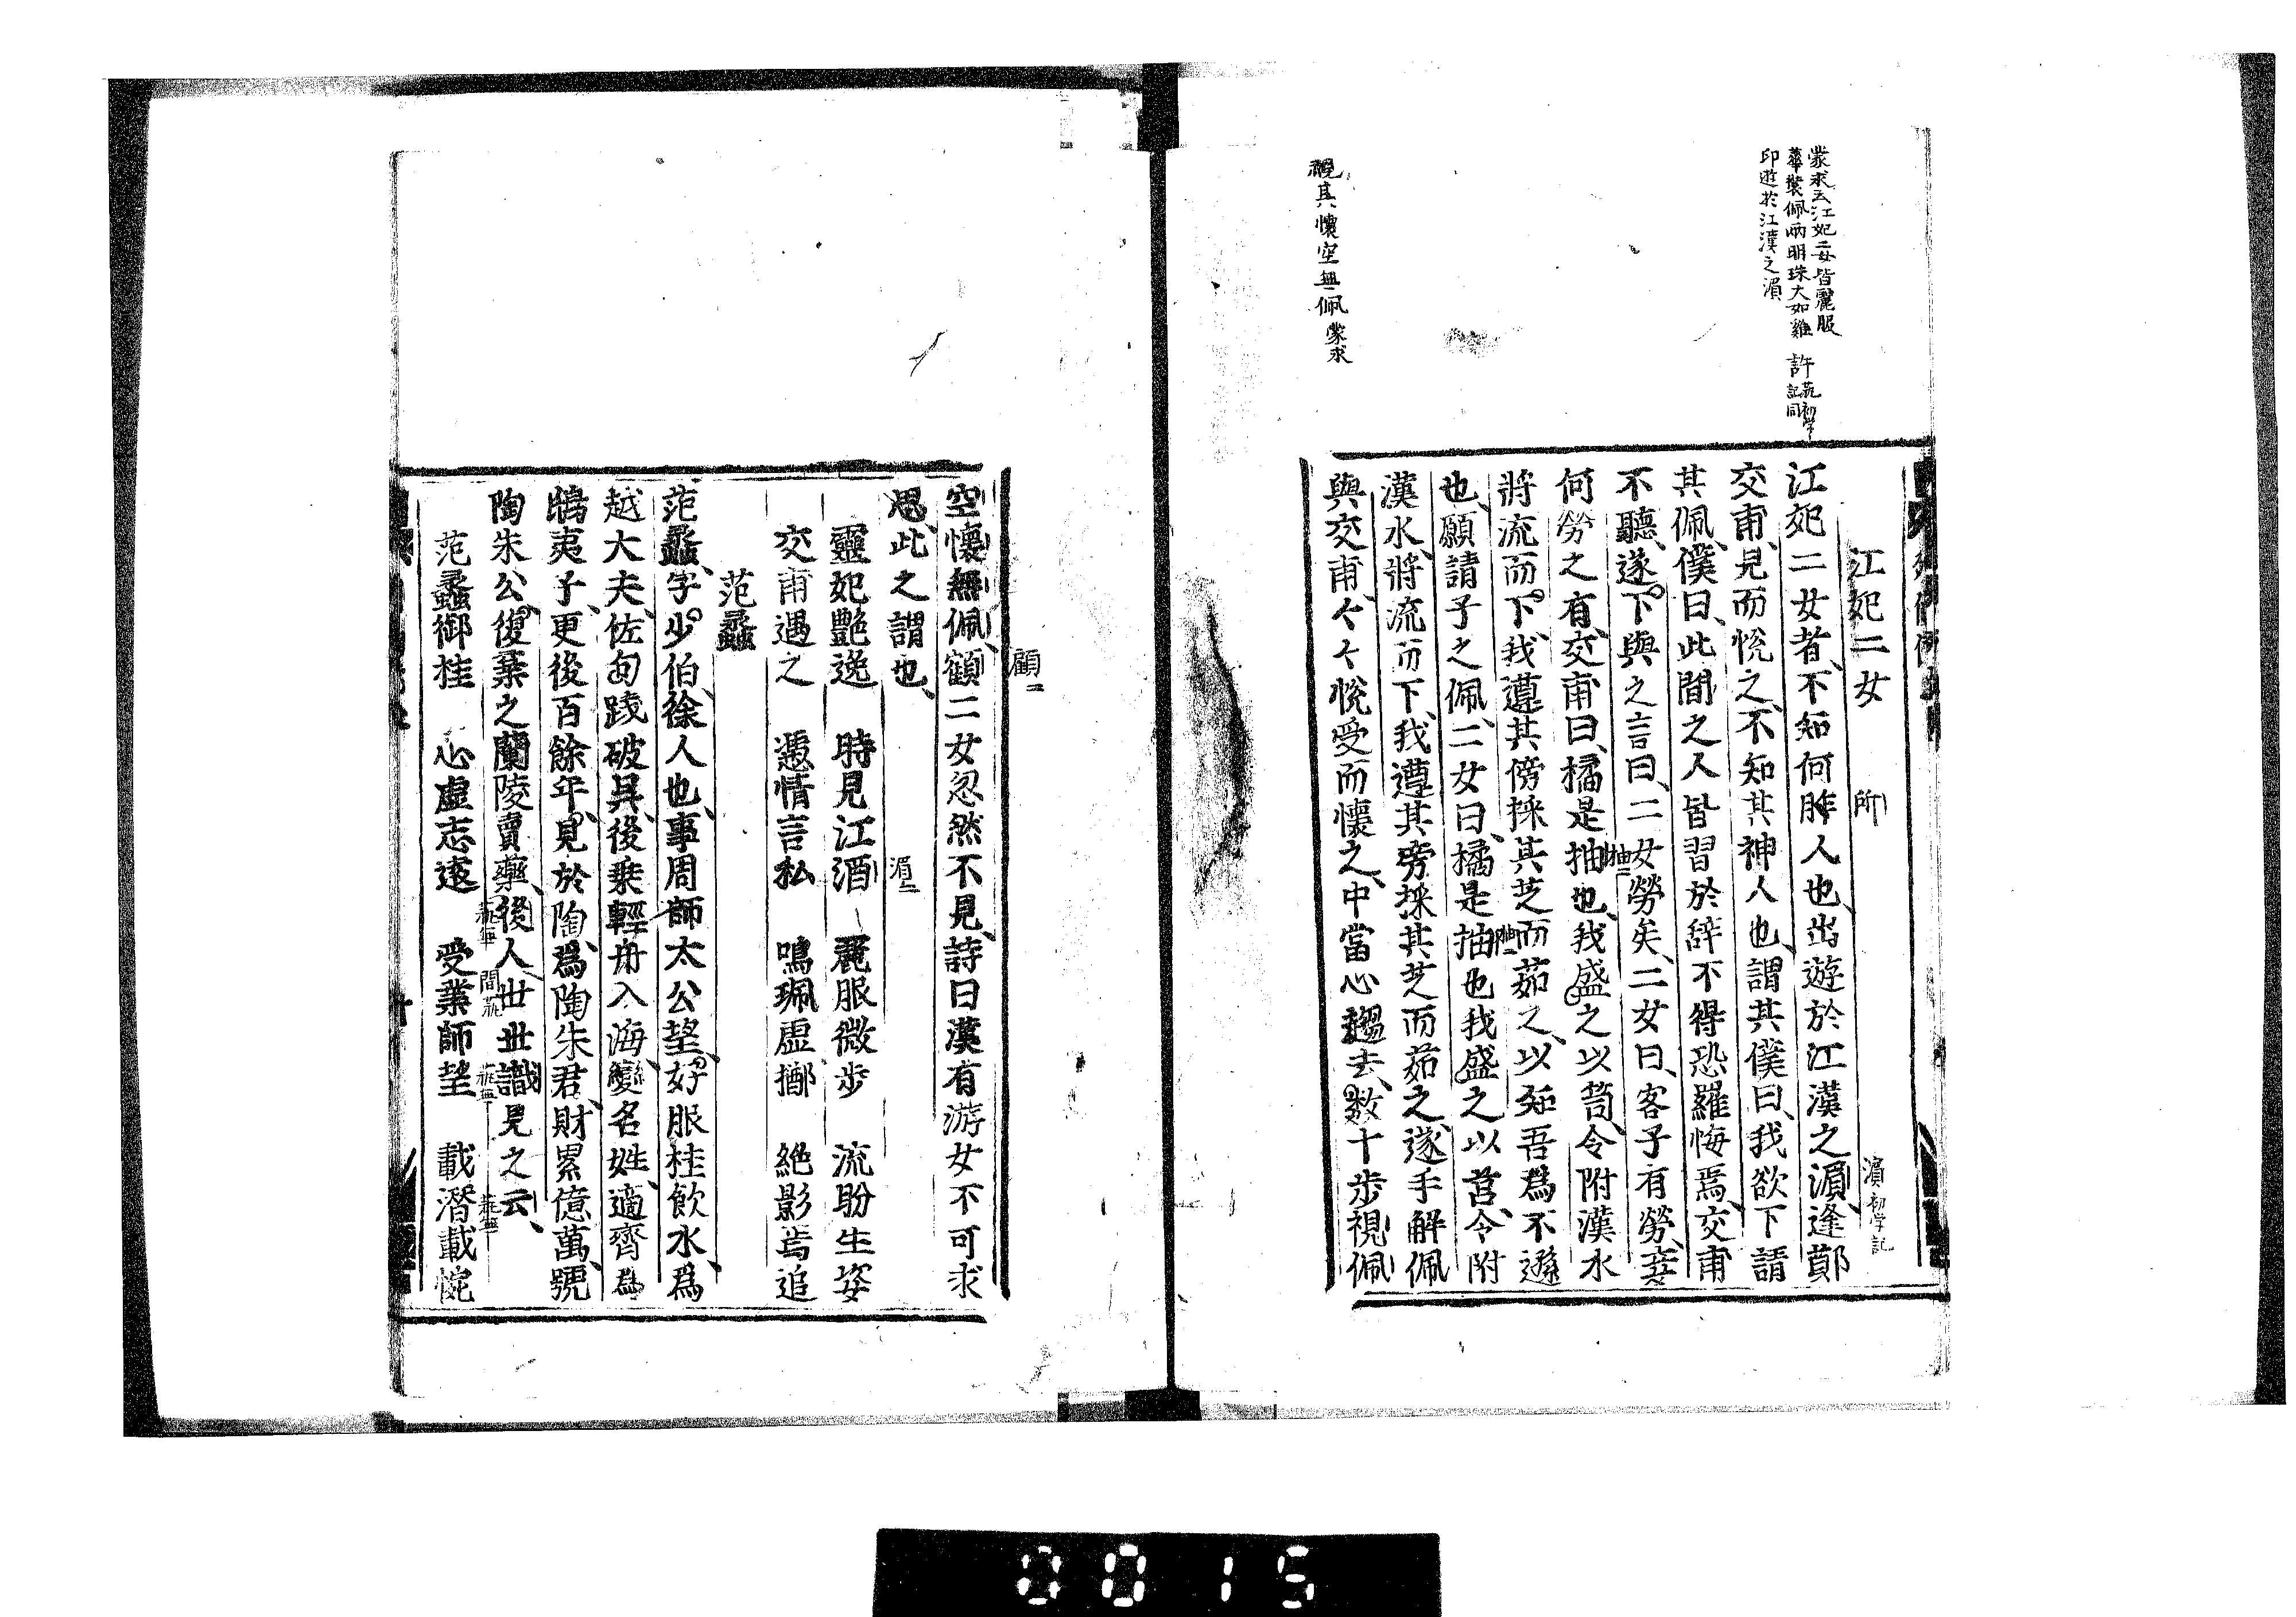 蒙求云江妃二女皆麗服
華裝佩兩明珠大如雞
印遊於江漢之湄
視其懷空無佩蒙求
江妃二女
所
濵初学記
江妃二女者不知何所人也出遊於江漢之湄逢鄭
交甫見而悅之不知其神人也謂其僕曰我欲下請
其佩僕曰此間之人皆習於辞不得恐羅悔焉交甫
不聽遂下與之言曰二女勞矣二女曰客子有勞妾
何勞之有交甫曰橘是抽也我盛之以筥令附漢水
將流而下我遵其傍採其芝而茹之以知吾為不遜
也願請子之佩二女曰橘是抽也我盛之以筥令附
漢水將流而下我遵其旁採其芝而茹之遂手解佩
與交甫々々悅受而懷之中當心趨去数十步視佩
空懷無佩顧二女忽然不見詩曰漢有游女不可求
顧
思此之謂也
湄
靈妃艷逸 時見江湄 麗服微步 流盼生姿
交甫遇之 憑情言私 鳴珮虛擲 絕影焉追
范蠡
范蠡字少伯徐人也事周師太公望好服桂飲水為
越大夫佐句踐破吳後乗輕舟入海變名姓適齊為
鴟夷子更後百餘年見於陶為陶朱君財累億萬號
陶朱公復棄之蘭陵賣藥後人世世識見之云
范蠡御桂 心虛志遠 受業師望 載潛載惋
0015